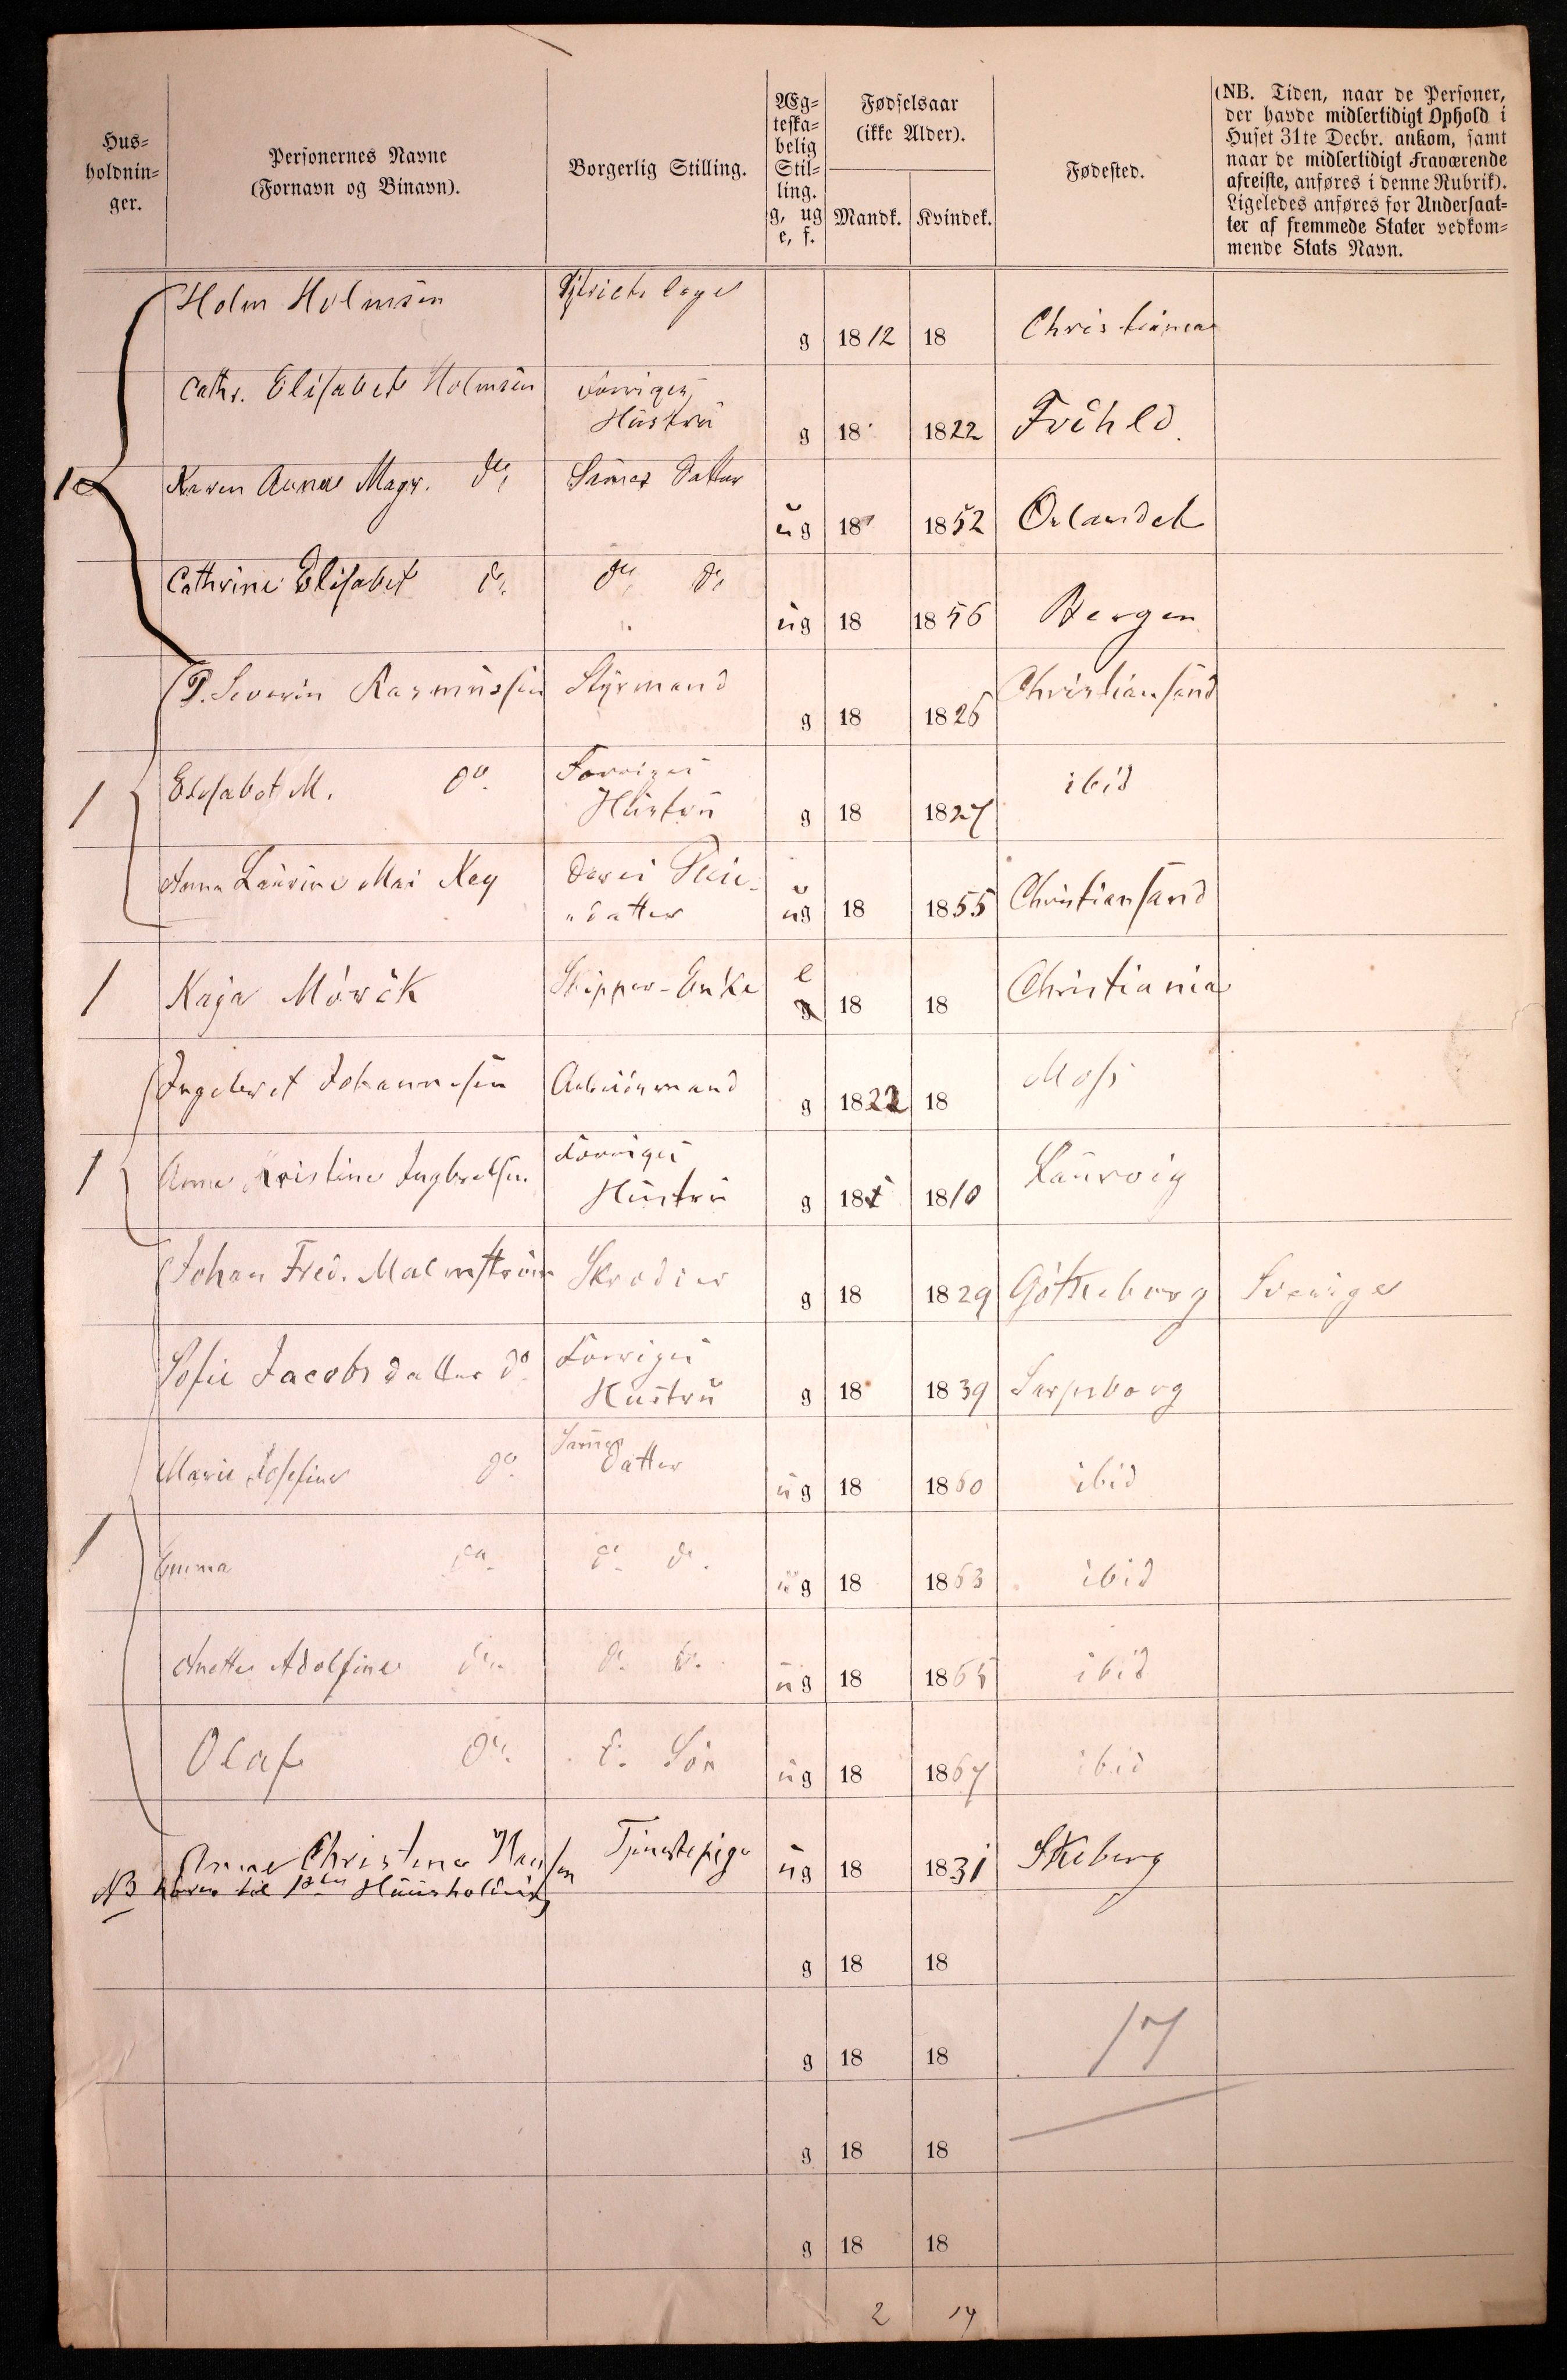 Hus-
holdnin-
ger.
Personernes Navne
(Fornavn og Binavn).
Borgerlig Stilling.
Æg-
teska-
belig
Stil-
ling.
g, ug
e, f.
Fødselsaar
(ikke Alder).
Mandk. Kvindek.
Fødested.
(NB. Tiden, naar de Personer,
der havde midlertidigt Ophold i
Huset 31te Decbr. ankom, samt
naar de midlertidigt Fraværende
afreiste, anføres i denne Rubrik).
Ligeledes anføres for Undersaat-
ter af fremmede Stater vedkom-
mende Stats Navn.
Holm Holmsen g 1812 18 Christiania
Cathr. Elisabet Holmsen Forriges
Hustru g 18 1822 Frihld.
1 Karen Anna Magr. do Sames Datter ug 18 1852 Orlandet
Cathrine Elisabet do do do ug 18 1856 Bergen
P. Severin Rasmussen Styrmand g 18 1826 Christiansand
1 Elisabet M. do. Forriges
Hustru g 18 1827 ibid
Anna Laurine Mai Key Deres Pleie-
datter ug 18 1855 Christiansand
1 Kaja Mörck Skipper-Enke e g 18 18 Christiania
Ingebret Johannesen Arbeidsmand g 1822 18 Moss
1 Anne Kristine Ingbretsen Forriges
Hustru g 18 1810 Laurvig
Johan Fred. Malmström Skrædder g 18 1829 Götheborg Sverige
Sofie Jacobsdatter do Forriges
Hustru g 18 1839 Sarpsborg
Marie Josefine do. Sames
Datter ug 18 1860 ibid
1 Emma do. do. do. ug 18 1863 ibid
Anette Adolfine do. do. do. ug 18 1865 ibid
Olaf do. do. Sön ug 18 1867 ibid
Anne Christina Hansen Tjenestepige ug 18 1831 Skeberg
NB hörer til 1ste Huusholdning
g 18 18
g 18 18 17
g 18 18
g 18 18
2 14